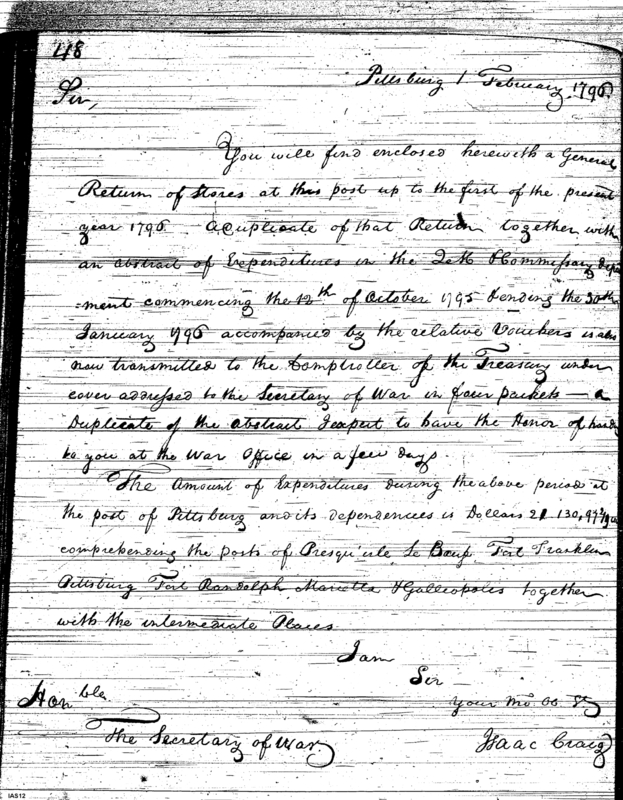 418
Pittsburg 1 February 1796
Sir,
You will find enclosed herewith a General
Return of Stores at this post up to the first of the present
year 1796. a Duplicate of that Return together with
an abstract of Expenditures in the &Commissary Depa
=ment commencing the 12th of October 1795 &ending the 30th
January 1796 accompanied by the relative Vouchers is also
now transmitted to the Comptroller of the Treasury under
cover addressed to the Secretary of War in four packets — a
Duplicate of the abstract I expect to have the Honor of
to you at the War Office in a few days.
The Amount of Expenditures during the above period at
the post of Pittsburg and its dependences is Dollars 21 130,
comprehending the posts of Presqu'isle Le Beuf Fort Franklin
Pittsburg Fort Randolph Marietta &Galleopolis together
with the intermediate Places
I am
Sir
Your Mo. Ob. St
Honble
The Secretary of War
Isaac Craig
IAS12